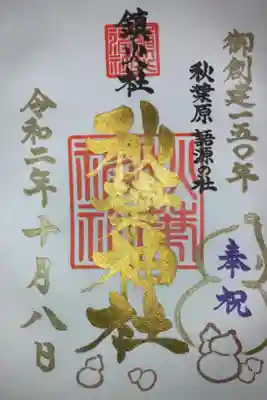 御創建一五〇年
秋葉原 語源の社
奉祝
鎮火社
秋葉神社
令和二年十月八日